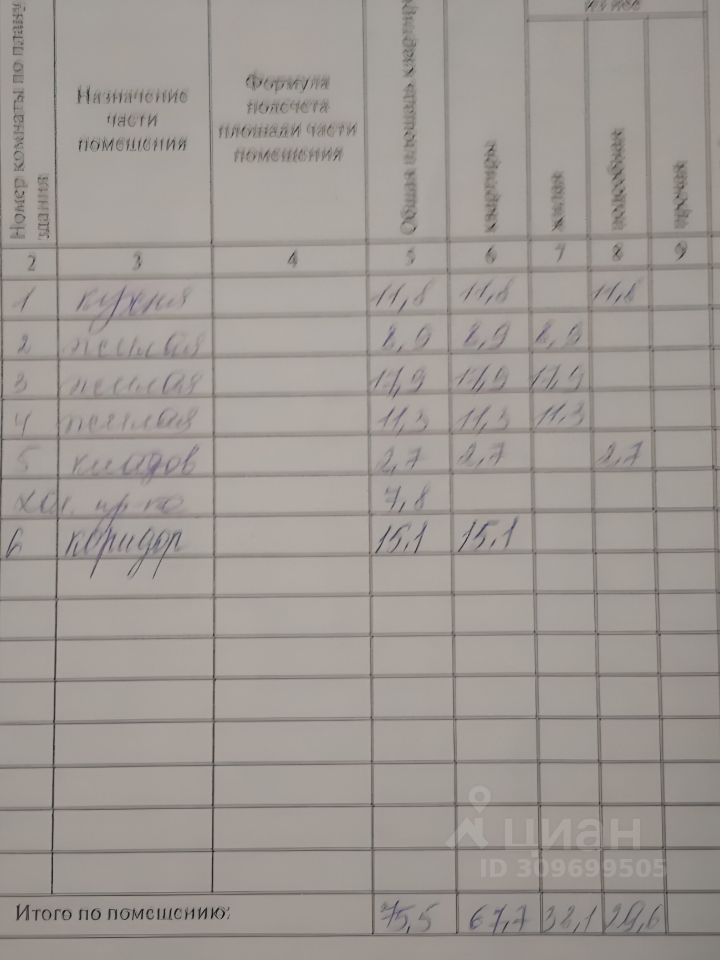 Номер комнаты по плану здания
Назначение части помещения
Формула подсчета площади части помещения
Общая площадь
квартиры
жилая
подсобная
прочая
2 3 4 5 6 7 8 9
1 кухня 11,8 11,8 11,8
2 жилая 8,9 8,9 8,9
3 жилая 17,9 17,9 17,9
4 жилая 11,3 11,3 11,3
5 кладов 2,7 2,7 2,7
хол. пр-ка 7,8
6 коридор 15,1 15,1
Итого по помещению: 75,5 67,7 38,1 29,6
циан
ID 309699505